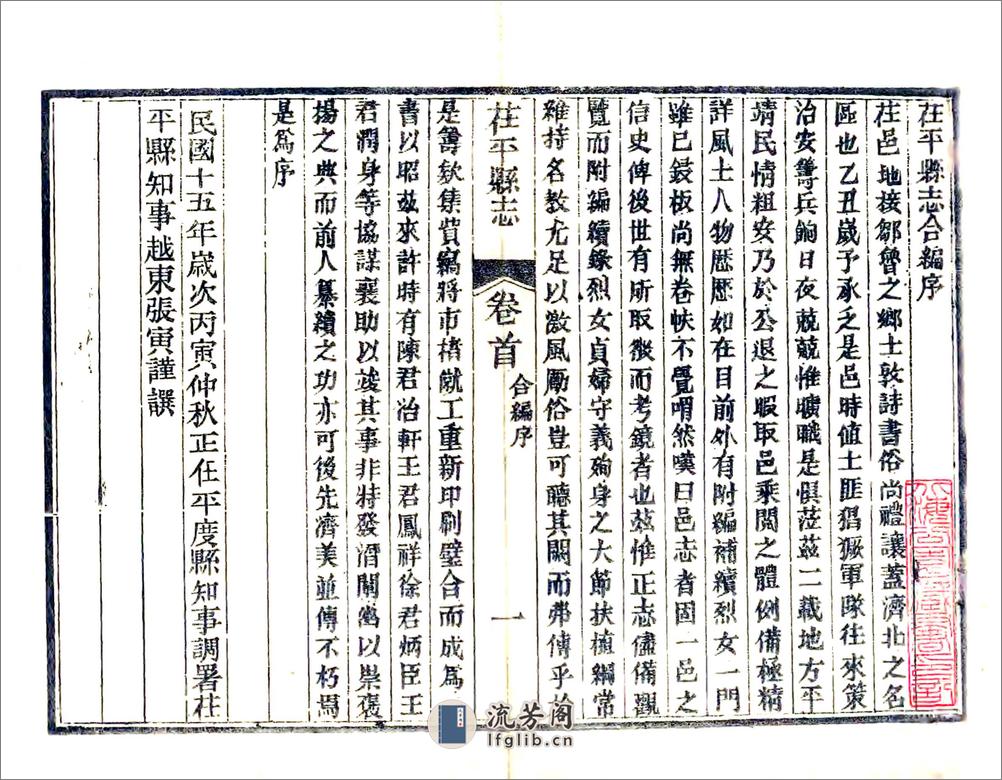 茌平縣志合編序
茌邑地接鄒魯之鄉士敦詩書俗尚禮讓蓋濟北之名
區也乙丑歲予承乏是邑時值土匪猖獗軍隊往來策
治安籌兵餉日夜兢兢惟曠職是懼蒞茲二載地方平
靖民情粗安乃於公退之暇取邑乘閱之體例備極精
詳風土人物歷歷如在目前外有附編補續烈女一門
雖已鋟板尚無卷帙不覺喟然嘆曰邑志者固一邑之
信史俾後世有所取徵而考鏡者也茲惟正志儘備觀
覽而附編續錄烈女貞婦守義殉身之大節扶植綱常
維持名教尤足以激風勵俗豈可聽其闕而弗傳乎於
茌平縣志
卷首
合編序
一
是籌欵集貲寫將市楮鳩工重新印刷璧合而成為
書以昭茲來許時有陳君冶軒王君鳳祥徐君炳臣王
君潤身等協謀襄助以竣其事非特發潛闡幽以崇褒
揚之典而前人纂續之功亦可後先濟美並傳不朽焉
是為序
民國十五年歲次丙寅仲秋正任平度縣知事調署茌
平縣知事越東張寅謹譔
流芳閣
lfglib.cn